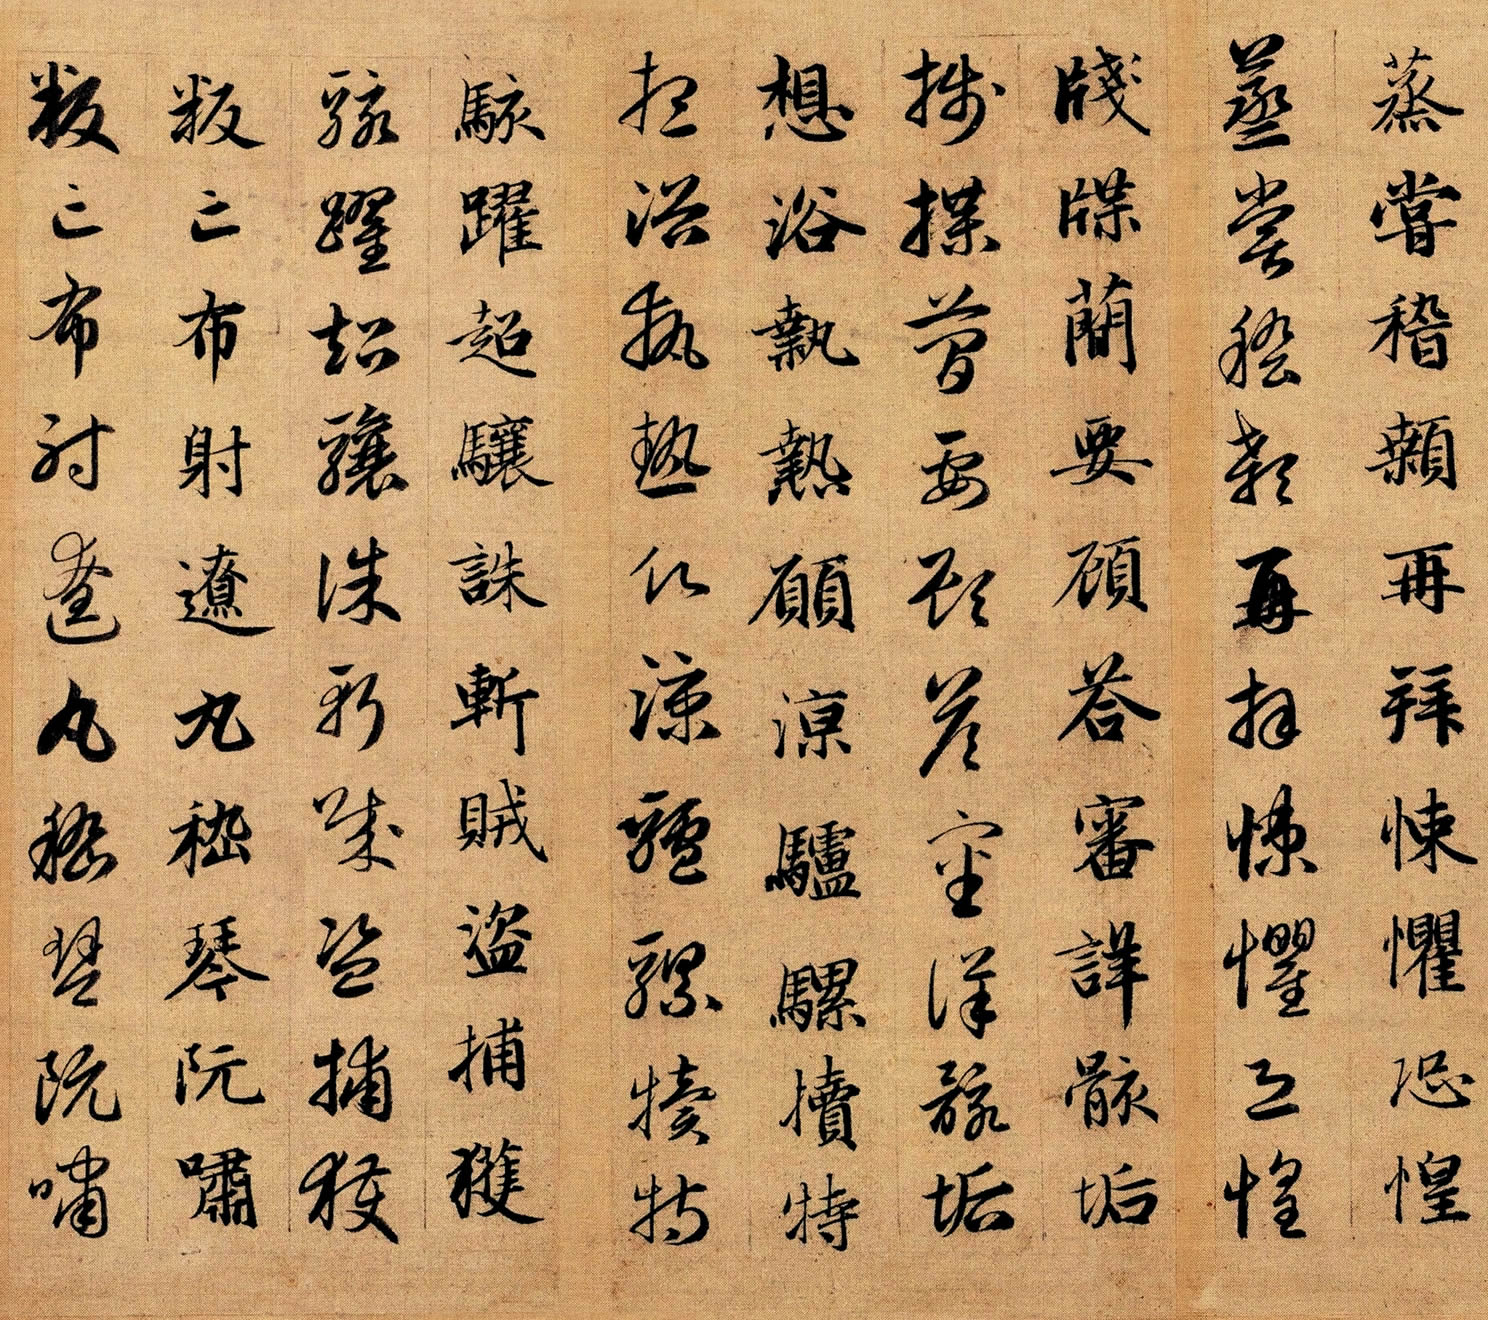 蒸甞稽顙再拜悚懼恐惶
蒸甞稽顙再拜悚懼恐惶
牋牒簡要顧荅審詳骸垢
牋牒簡要顧荅審詳骸垢
想浴執熱願涼驢騾犢特
想浴執熱願涼驢騾犢特
駭躍超驤誅斬賊盜捕獲
駭躍超驤誅斬賊盜捕獲
叛亡布射遼丸嵇琴阮嘯
叛亡布射遼丸嵇琴阮嘯